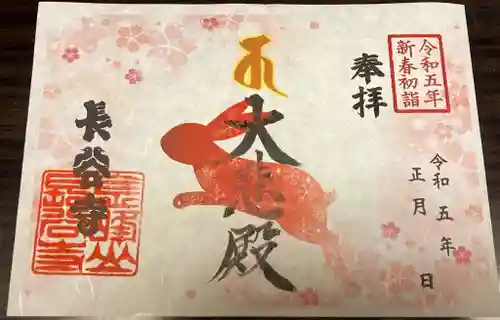 令和五年
新春初詣
奉拝
令和五年
正月　日
大悲殿
長谷寺